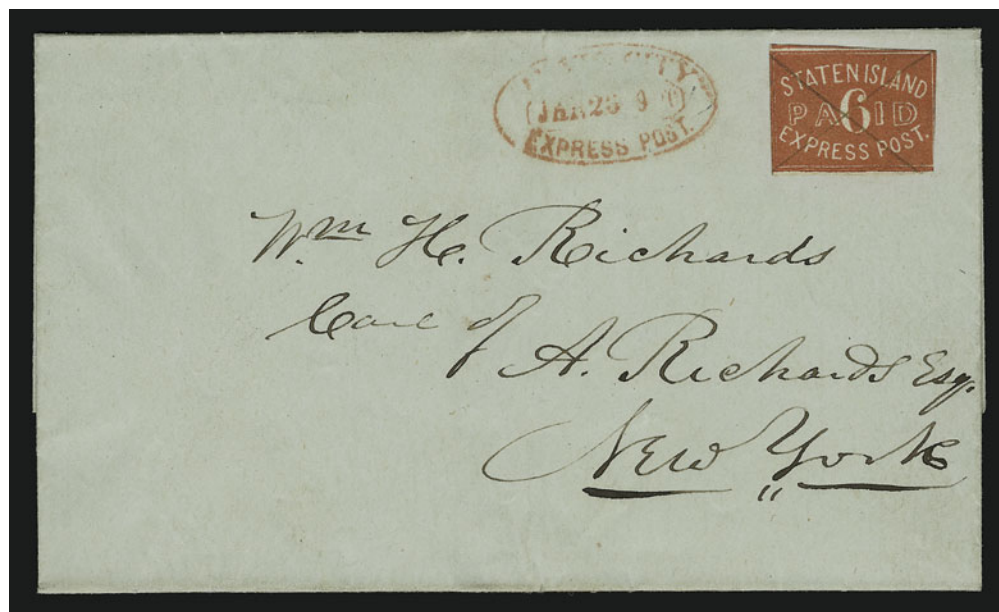 CITY
JAN 25 9
EXPRESS POST.
STATEN ISLAND
PA6ID
EXPRESS POST.
Wm. H. Richards
Care of
A. Richards Esq.
New York